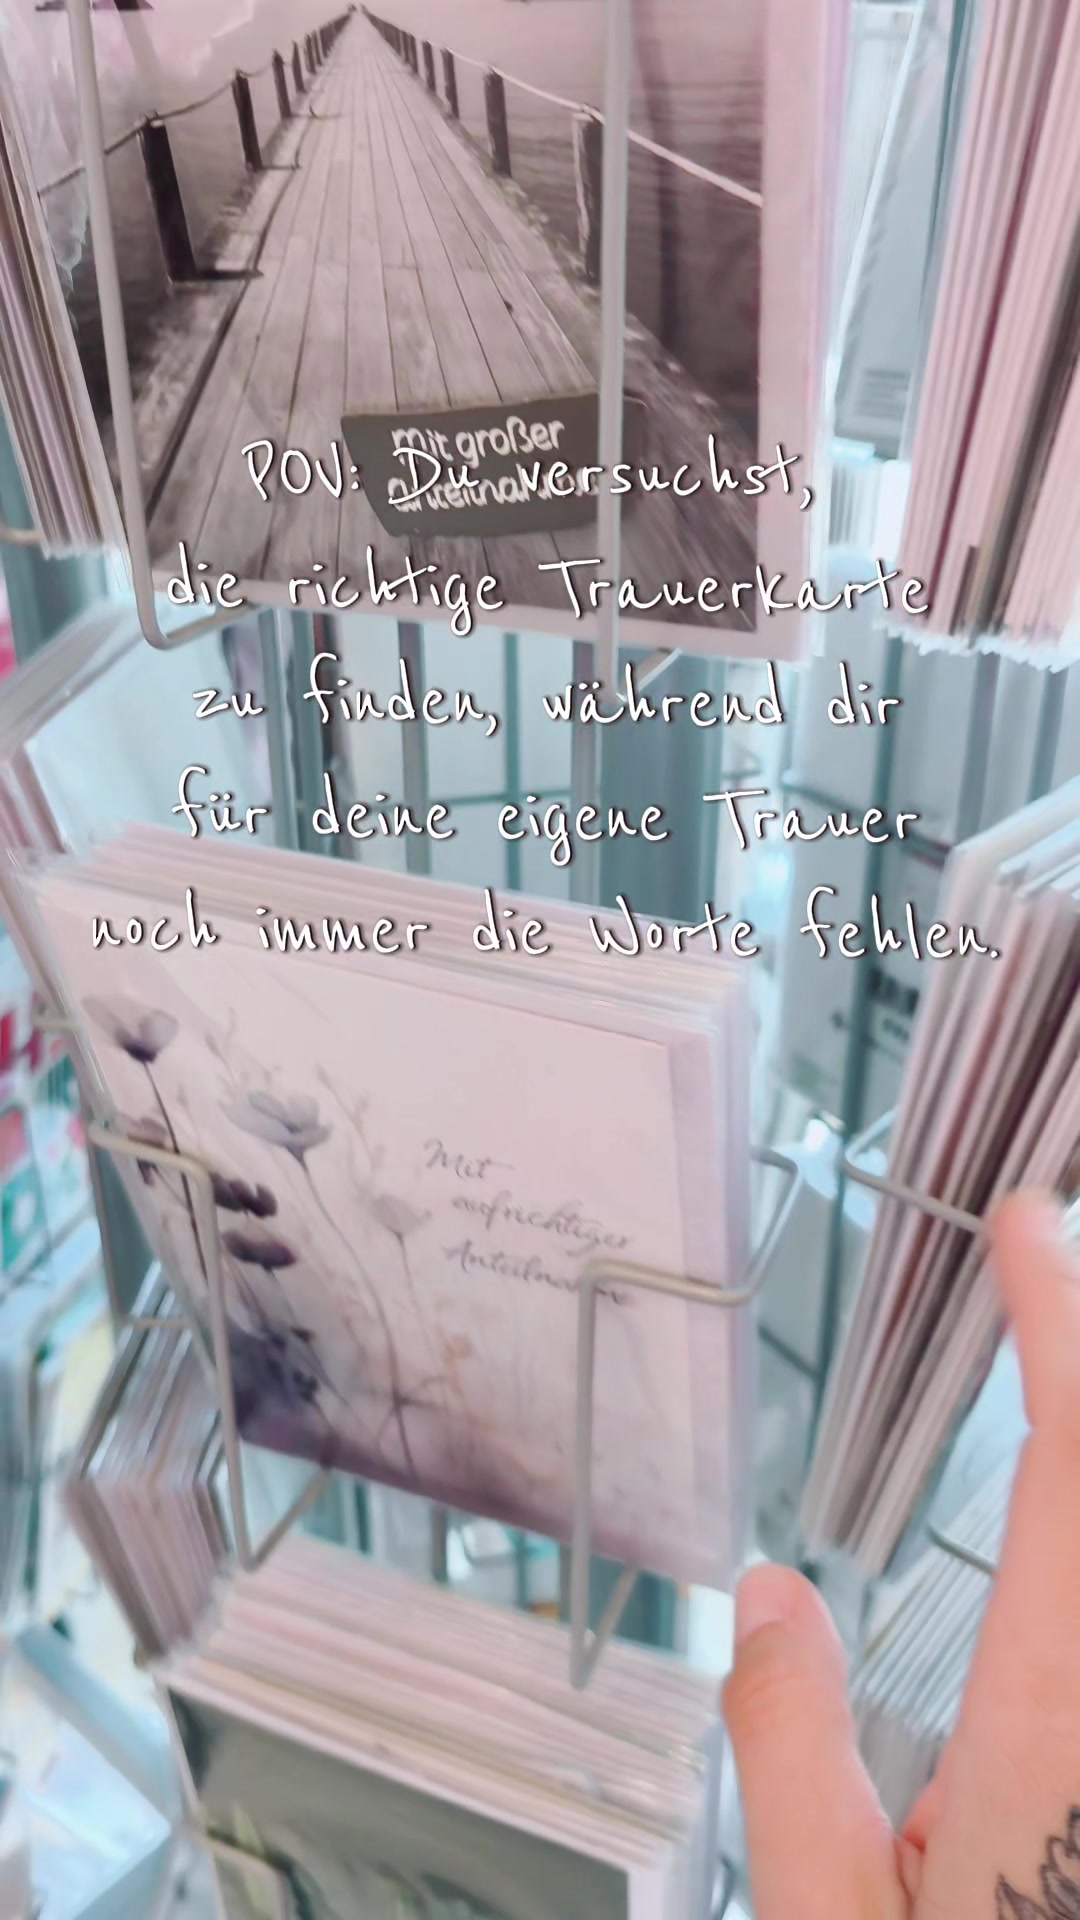 mit großer
POV: Du versuchst,
die richtige Trauerkarte
zu finden, während dir
für deine eigene Trauer
noch immer die Worte fehlen.
Mit
aufrichtiger